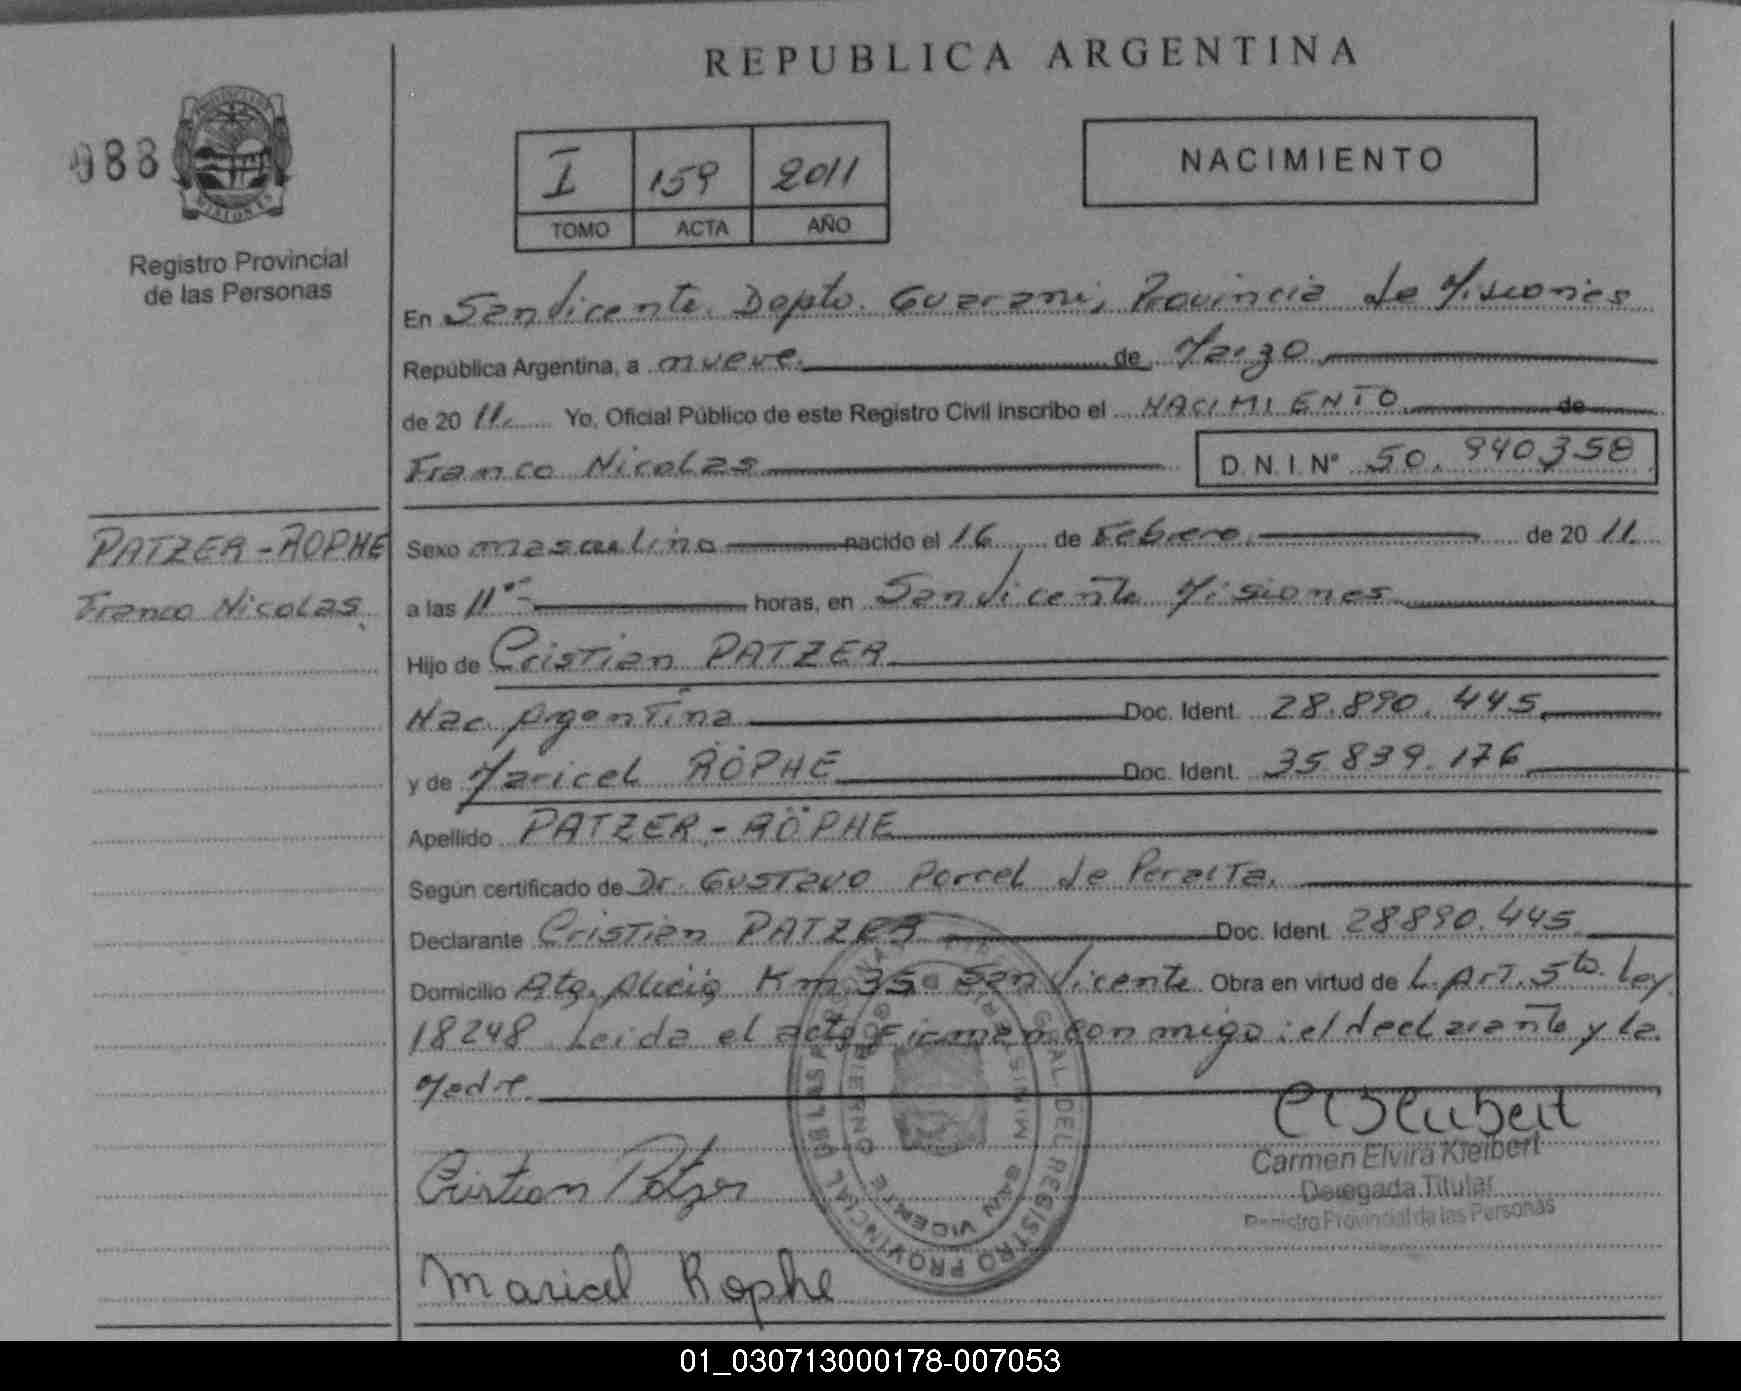 REPUBLICA ARGENTINA
088
PROVINCIA DE
MISIONES
Registro Provincial
de las Personas
I 159 2011
TOMO ACTA AÑO
NACIMIENTO
En San Vicente. Depto. Guarani, Provincia de Misiones
República Argentina, a nueve. de Marzo
de 20 11. Yo, Oficial Público de este Registro Civil inscribo el NACIMIENTO de
Franco Nicolas D.N.I.Nº 50.940358
PATZER-RÖPHE
Franco Nicolas
Sexo masculino nacido el 16 de Febrero de 20 11.
a las 11 horas, en San Vicente Misiones
Hijo de Cristian PATZER
Nac. Argentina Doc. Ident. 28.890.445
y de Maricel RÖPHE Doc. Ident. 35.839.176
Apellido PATZER-RÖPHE
Según certificado de Dr. Gustavo Porcel de Peralta.
Declarante Cristian PATZER Doc. Ident. 28890.445
Domicilio Pto. Alicia Km 35 San Vicente Obra en virtud de L. Art. 5to. Ley
18248 Leida el acta Firman con migo: el declarante y la
Madre.
Cristian Patzer
Maricel Rophe
Carmen Elvira Kleibert
Delegada Titular
Registro Provincial de las Personas
GRAL. DEL REGISTRO PROVINCIAL DE LAS PERSONAS
MINISTERIO GOBIERNO
SAN VICENTE
01_030713000178-007053